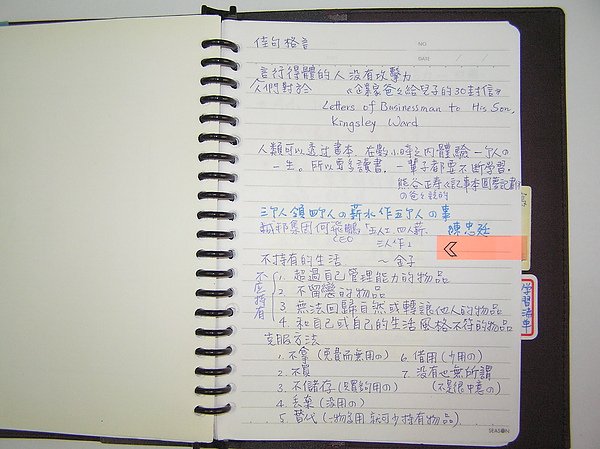 佳句格言
NO.
DATE / /
言行得體的人沒有攻擊力
《企業家爸爸給兒子的30封信》
Letters of Businessman to His Son,
Kingsley Ward
人類可以透過書本,在數小時之內體驗一个人の
一生。所以要多讀書.一輩子都要不斷學習.
熊谷正寿《記事本圓夢記
の爸爸說的
三个人領四个人の薪水作五个人の事
城邦集团何飛鵬「五人工 四人薪. 陳忠廷
CEO 三人作」
不持有的生活 ~ 金子
不應持有
1. 超過自己管理能力的物品
2. 不留戀的物品
3. 無法回歸自然或轉讓他人的物品
4. 和自己或自己的生活風格不符的物品
克服方法
1. 不拿 (免費而無用の) 6. 借用 (少用の)
2. 不買 7. 沒有也無所謂
3. 不儲存 (只買約用の) (不是很中意の)
4. 丟棄 (沒用の)
5. 替代 (一物多用 就可少持有物品)
学習清單
SEASON